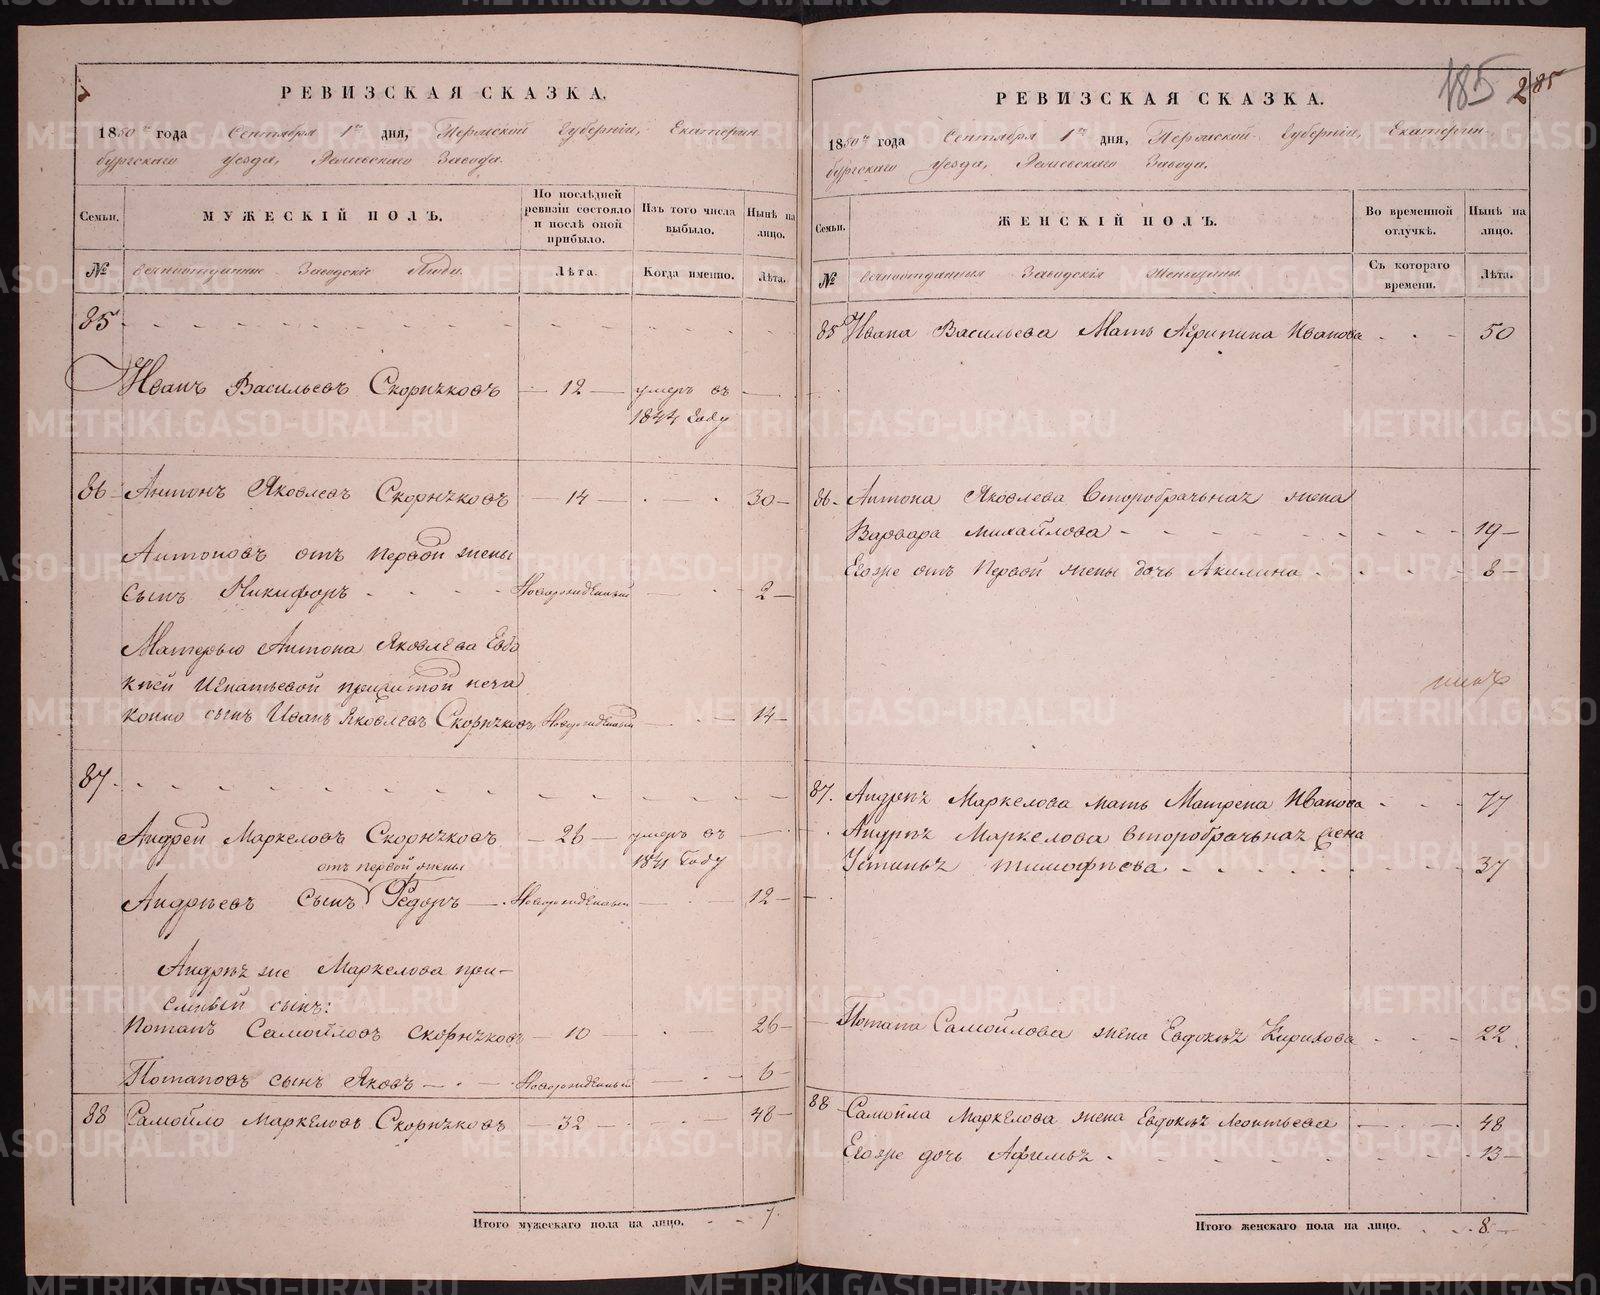 185 285
РЕВИЗСКАЯ СКАЗКА.
1850го года Сентября 1го дня, Пермской Губерніи, Екатерин
бургскаго уезда, Завода.
Семьи.
МУЖЕСКІЙ ПОЛЪ.
По послѣдней ревизіи состояло и послѣ оной прибыло.
Изъ того числа выбыло.
Нынѣ на лицо.
№
Заводскіе Люди.
Лѣта.
Когда именно.
Лѣта.
85
Иванъ Васильевъ Скорняковъ — 12 — умеръ въ —
1844 году
86 Антонъ Яковлевъ Скорняковъ — 14 — 30
Антоновъ отъ первой жены
сынъ Никифоръ Новорожденный 2
Матерью Антона Яковлева Евдо
кией Игнатьевой прижитой неза
конно сынъ Иванъ Яковлевъ Скорняковъ Новорожденный 14
87
Андрей Маркеловъ Скорняковъ — 26 — умеръ въ —
отъ первой жены 1841 году
Андреевъ сынъ Федоръ — Новорожденный 12
Андрея же Маркелова при-
емный сынъ:
Потапъ Самойловъ Скорняковъ — 10 — 26
Потаповъ сынъ Яковъ — Новорожденный 6
88 Самойло Маркеловъ Скорняковъ — 32 — 48
Итого мужескаго пола на лицо. 7
РЕВИЗСКАЯ СКАЗКА.
1850го года Сентября 1го дня, Пермской Губерніи, Екатерин-
бургскаго уезда, Завода.
Семьи.
ЖЕНСКІЙ ПОЛЪ.
Во временной отлучкѣ.
Нынѣ на лицо.
№
Заводскія Женщины.
Съ котораго времени.
Лѣта.
85 Ивана Васильева Мать Агрипина Иванова 50
86 Антона Яковлева второбрачная жена
Варвара Михайлова 19
Егоже отъ Первой жены дочь Акилина 8
87. Андрея Маркелова мать Матрена Иванова 77
Андрея Маркелова второбрачная жена
Устинья Тимофеева 37
Потапа Самойлова жена Евдокия Кирилова 22
88 Самойла Маркелова жена Евдокия Леонтьева 48
Егоже дочь Афимья 13
Итого женскаго пола на лицо. 8